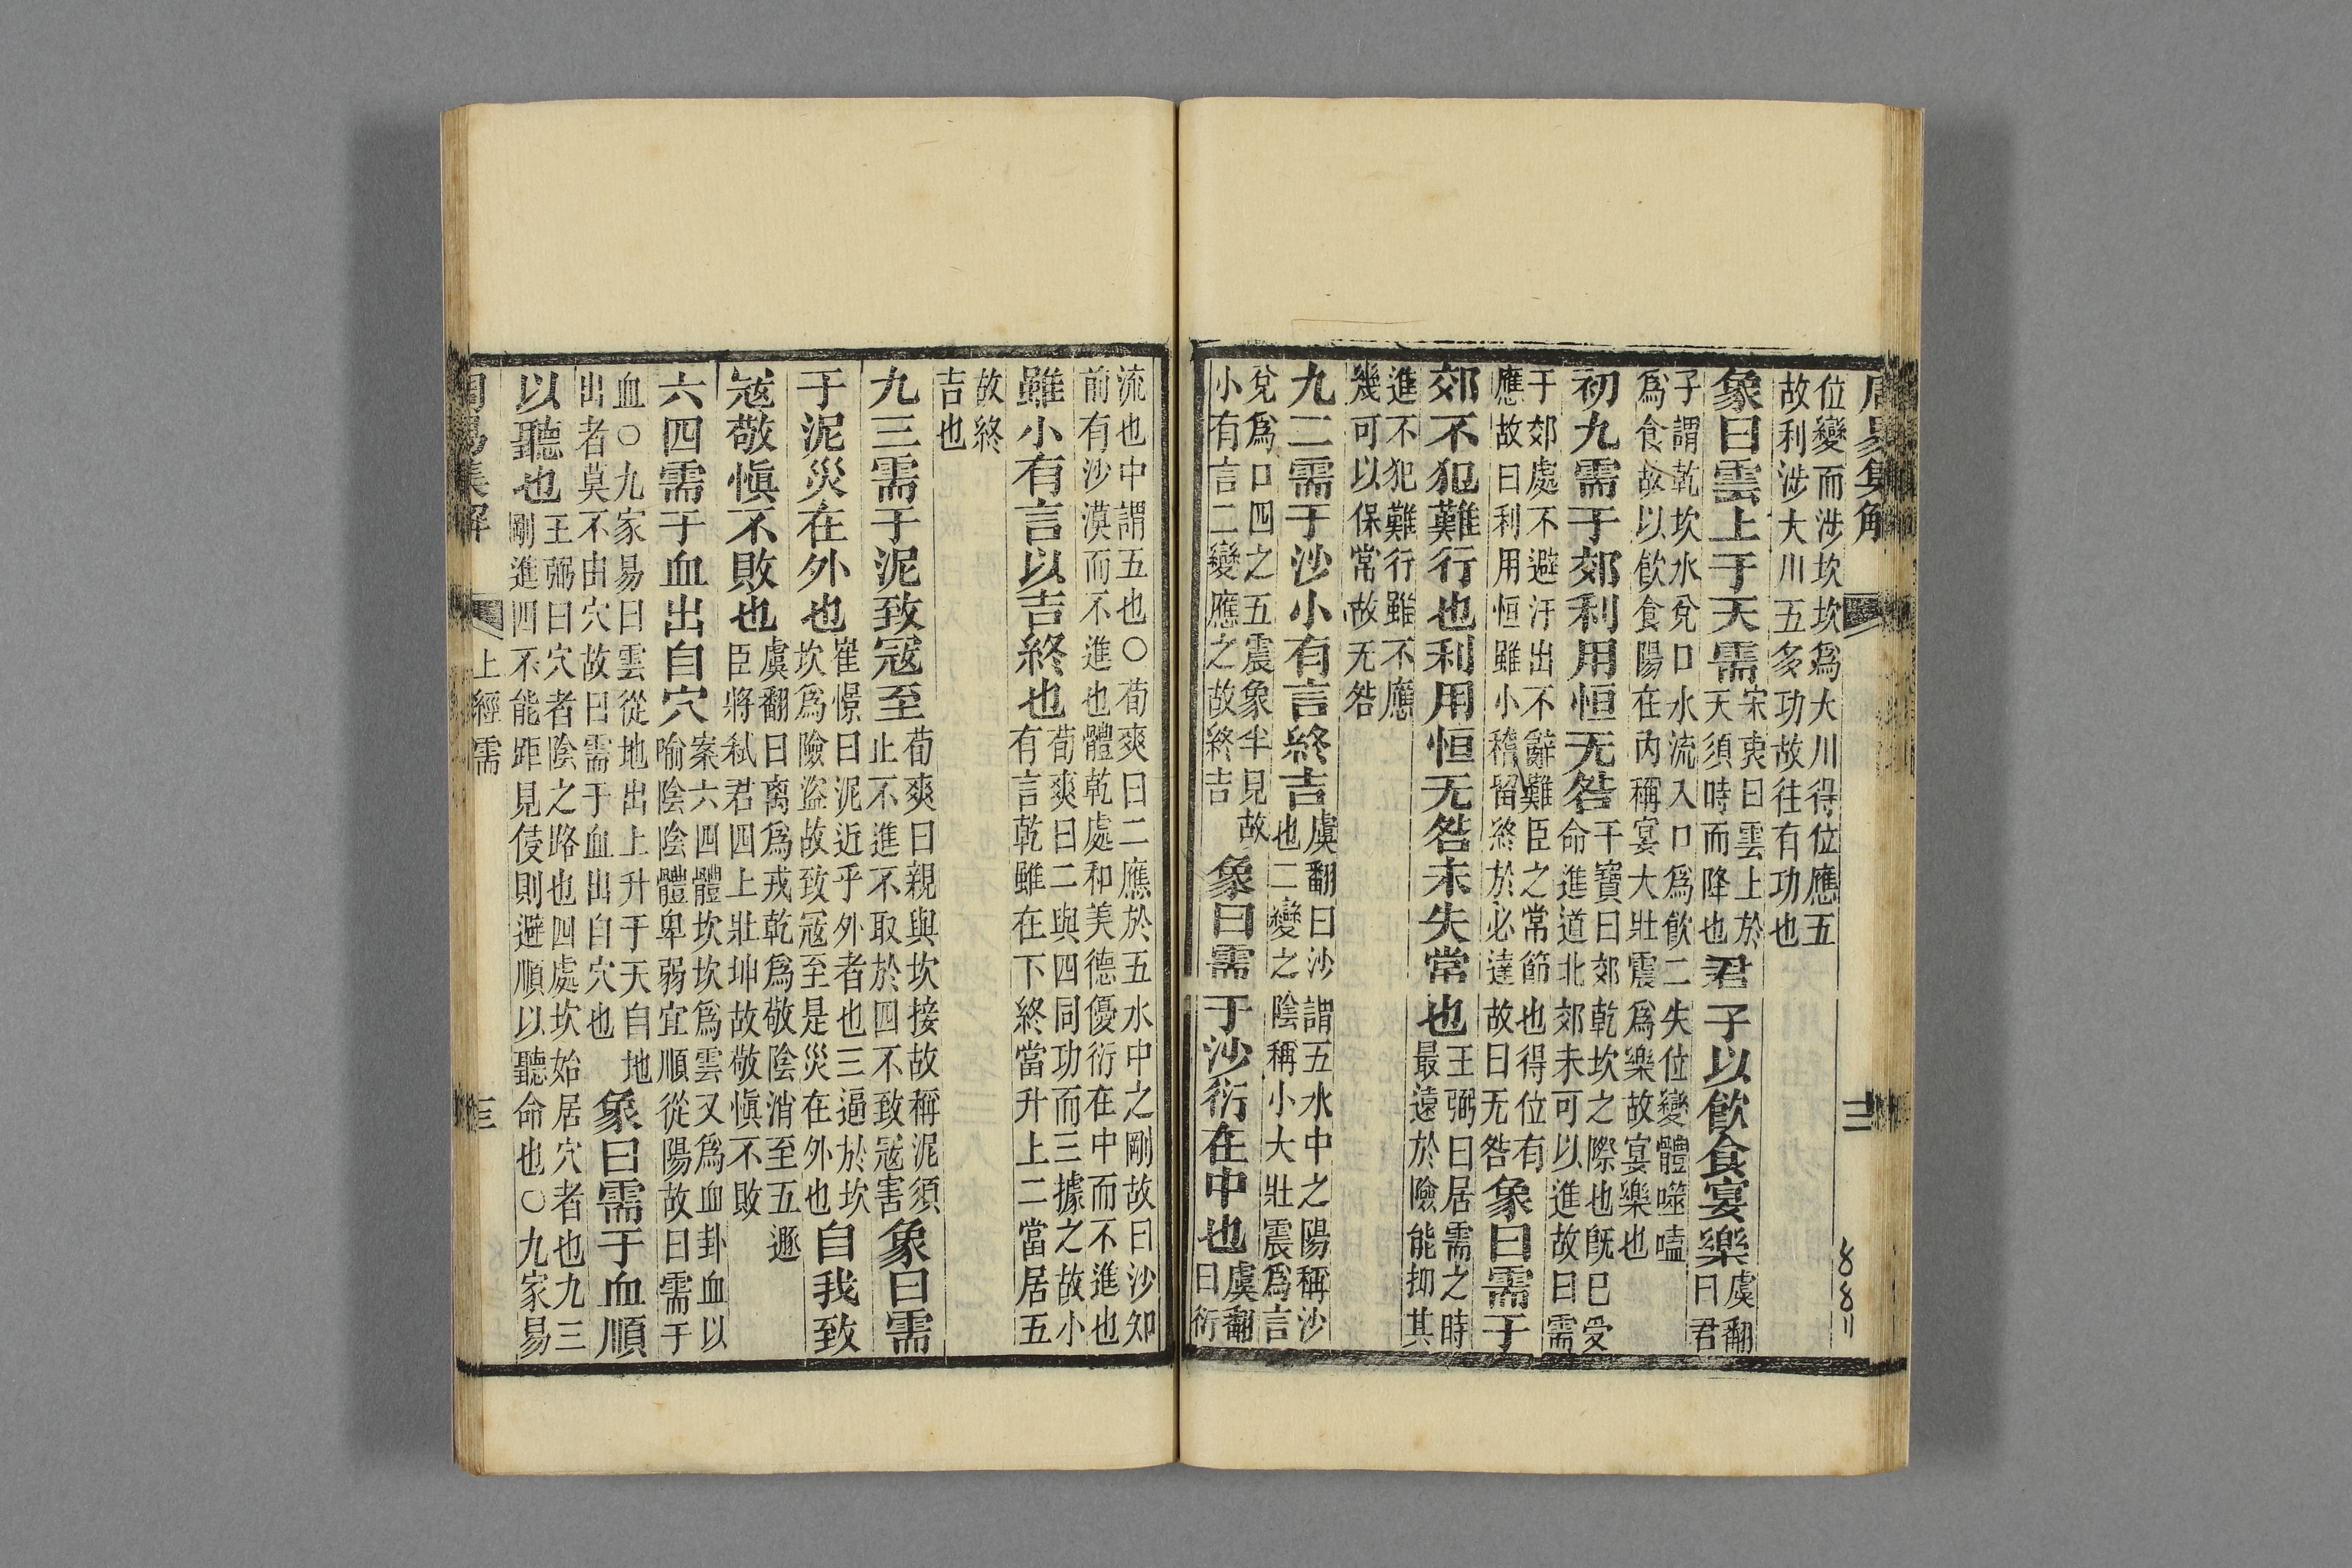 周易集解 三
位變而涉坎坎爲大川得位應五
故利涉大川五多功故往有功也
象曰雲上于天需宋衷曰雲上於天須時而降也君子以飲食宴樂虞翻曰君
子謂乾坎水兌口水流入口爲飲二失位變體噬嗑
爲食故以飲食陽在內稱宴大壯震爲樂故宴樂也
初九需于郊利用恒无咎干寶曰郊乾坎之際也旣已受命進道北郊未可以進故曰需
于郊處不避汙出不辭難臣之常節也得位有應故曰利用恒雖小稽留終於必達故曰无咎象曰需于
郊不犯難行也利用恒无咎未失常也王弼曰居需之時最遠於險能抑其
進不犯難行雖不應
幾可以保常故无咎
九二需于沙小有言終吉虞翻曰沙謂五水中之陽稱沙也二變之陰稱小大壯震爲言
兌爲口四之五震象半見故小有言二變應之故終吉象曰需于沙衍在中也虞翻曰衍
流也中謂五也○荀爽曰二應於五水中之剛故曰沙知
前有沙漠而不進也體乾處和美德優衍在中而不進也
雖小有言以吉終也荀爽曰二與四同功而三據之故小有言乾雖在下終當升上二當居五
故終
吉也
九三需于泥致寇至荀爽曰親與坎接故稱泥須止不進不取於四不致寇害象曰需
于泥災在外也崔憬曰泥近乎外者也三逼於坎坎爲險盜故致寇至是災在外也自我致
寇敬愼不敗也虞翻曰离爲戎乾爲敬陰消至五遯臣將弒君四上壯坤故敬愼不敗
六四需于血出自穴案六四體坎坎爲雲又爲血卦血以喻陰陰體卑弱宜順從陽故曰需于
血○九家易曰雲從地出上升于天自地出者莫不由穴故曰需于血出自穴也象曰需于血順
以聽也王弼曰穴者陰之路也四處坎始居穴者也九三剛進四不能距見侵則避順以聽命也○九家易
周易集解 上經需 三